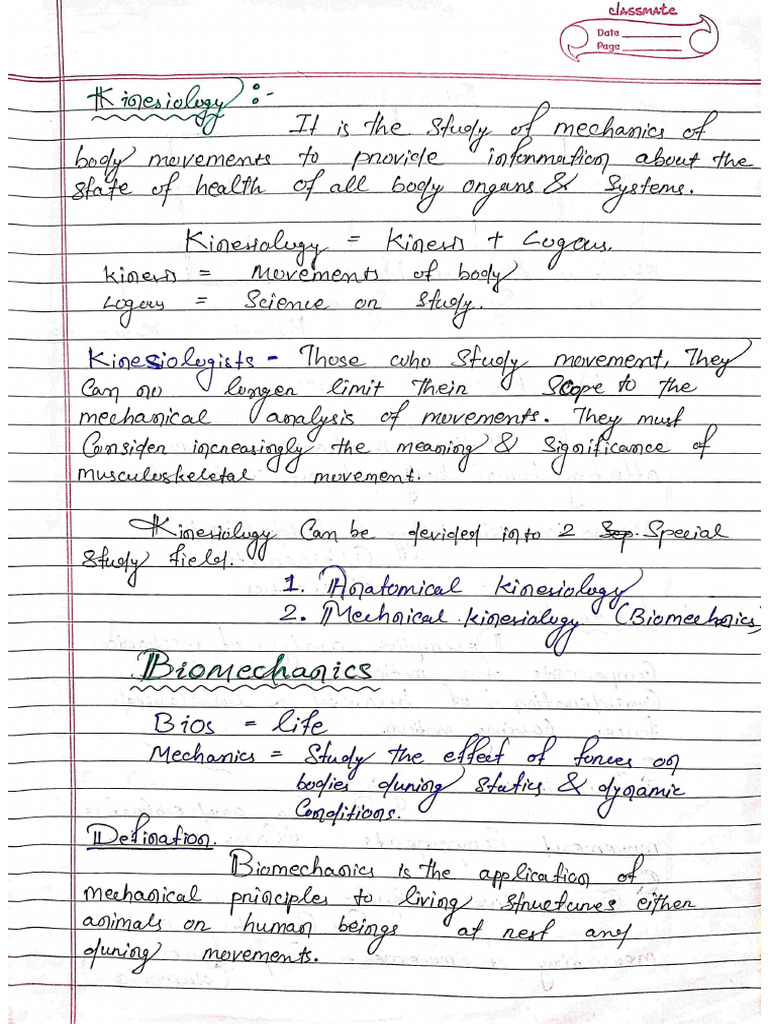 classmate
Date
Page
Kinesiology :-
It is the study of mechanics of
body movements to provide information about the
state of health of all body organs & systems.
Kinesiology = Kinesis + Logous.
Kinesis = Movements of body
Logous = Science or study.
Kinesiologists - Those who study movement, They
Can no longer limit their Scope to the
mechanical analysis of movements. They must
Consider increasingly the meaning & significance of
musculoskeletal movement.
Kinesiology Can be devided into 2 Sep. Special
study field.
1. Anatomical kinesiology
2. Mechnical kinesiology (Biomechanics)
Biomechanics
Bios = life
Mechanics = Study the effect of forces on
bodies during statics & dynamic
Conditions.
Defination.
Biomechanics is the application of
mechanical principles to living structures either
animals or human beings at rest and
during movements.